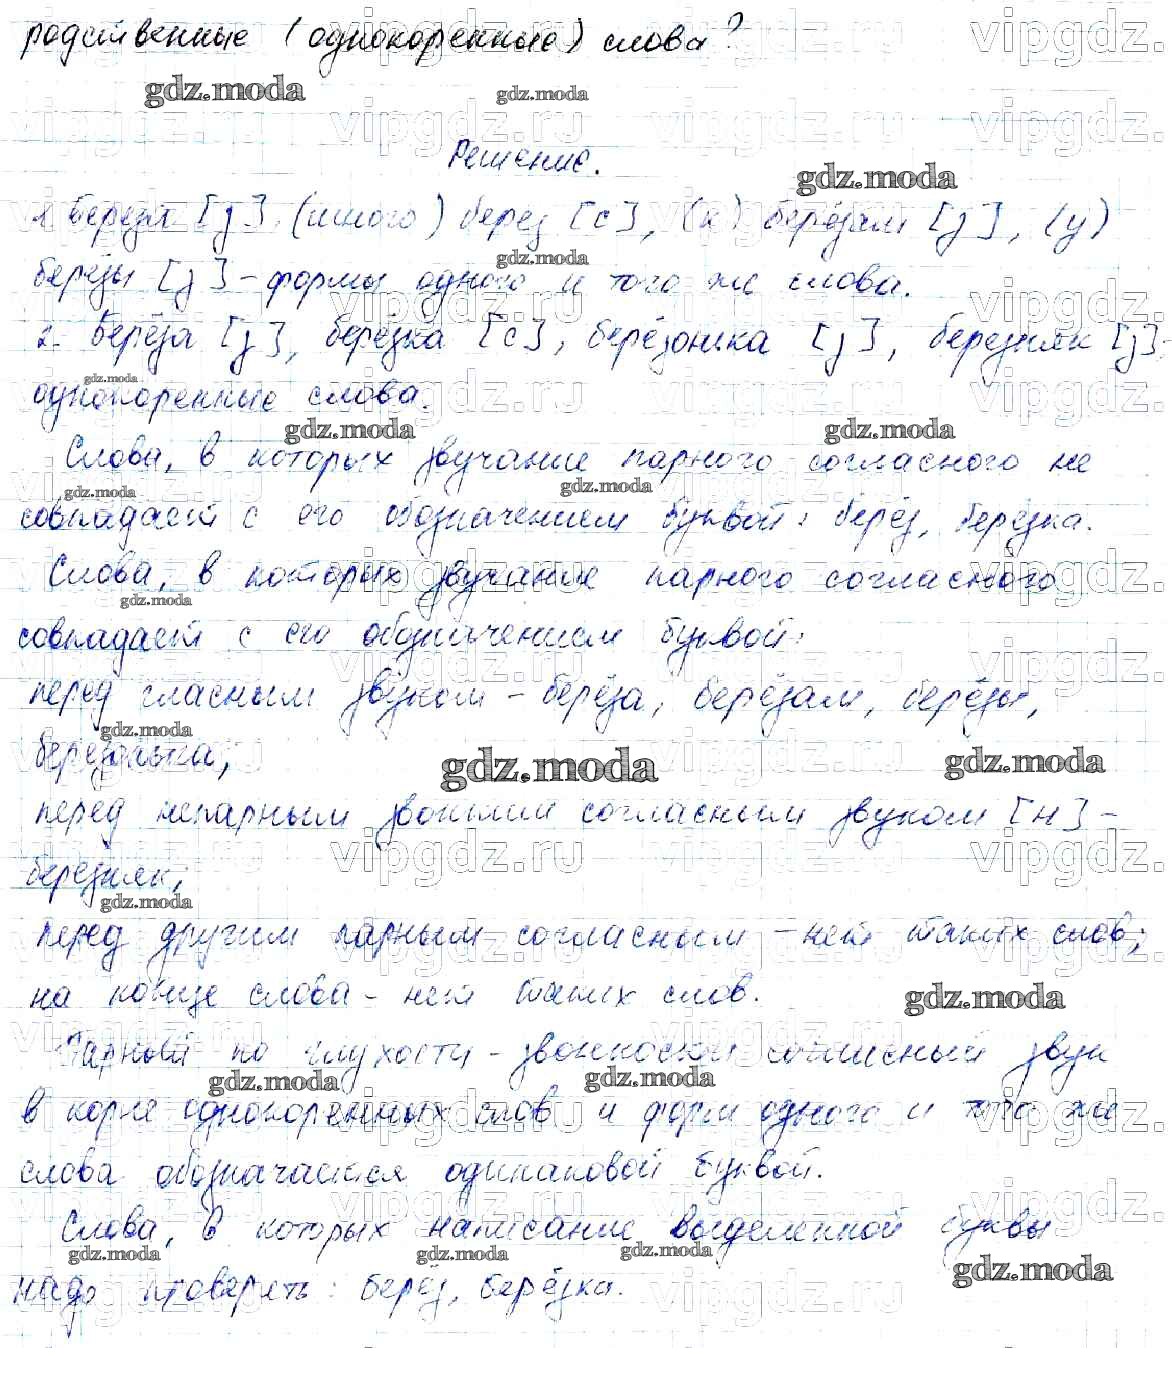 родственные (однокоренные) слова?
Решение.
1. берёза [з], (много) берёз [с], (к) берёзам [з], (у)
берёзы [з] – формы одного и того же слова.
2. Берёза [з], берёзка [с], берёзонька [з], березняк [з]-
однокоренные слова.
Слова, в которых звучание парного согласного не
совпадает с его обозначением буквой: берёз, берёзка.
Слова, в которых звучание парного согласного
совпадает с его обозначением буквой:
перед гласным звуком – берёза, берёзам, берёзы,
берёзонька;
перед непарным звонким согласным звуком [н] –
березняк;
перед другим парным согласным – нет таких слов;
на конце слова – нет таких слов.
Парный по глухости – звонкости согласный звук
в корне однокоренных слов и форм одного и того же
слова обозначается одинаковой буквой.
Слова, в которых написание выделенной буквы
надо проверять: берёз, берёзка.
gdz.moda
vipgdz.ru